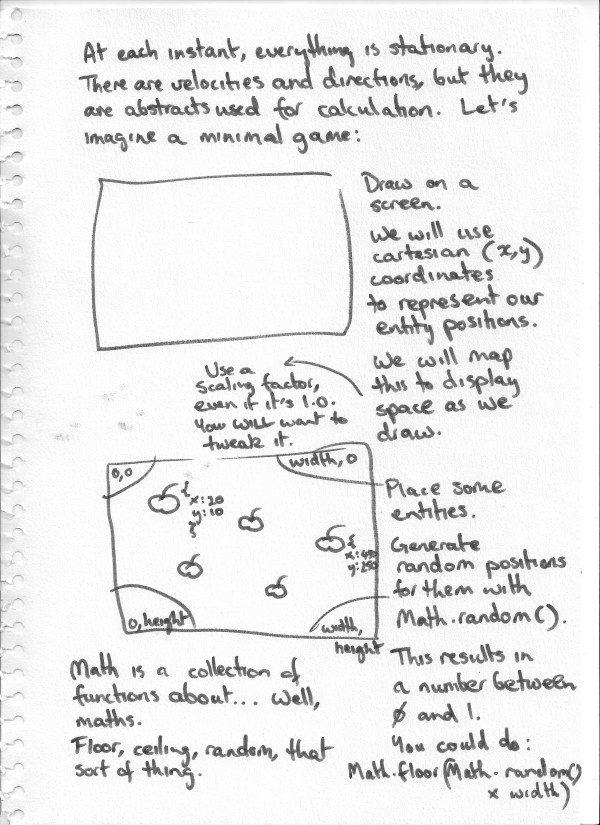 At each instant, everything is stationary.
There are velocities and directions, but they
are abstracts used for calculation. Let's
imagine a minimal game:
Draw on a
screen.
We will use
cartesian (x,y)
coordinates
to represent our
entity positions.
We will map
this to display
space as we
draw.
Use a
scaling factor,
even if it's 1.0.
You WILL want to
tweak it.
0,0
width, 0
{
x:20
y:10
}
{
x:490
y:250
0, height
width,
height
Place some
entities.
Generate
random positions
for them with
Math.random().
This results in
a number between
0 and 1.
You could do:
Math.floor(Math.random()
x width)
Math is a collection of
functions about... Well,
maths.
Floor, ceiling, random, that
sort of thing.